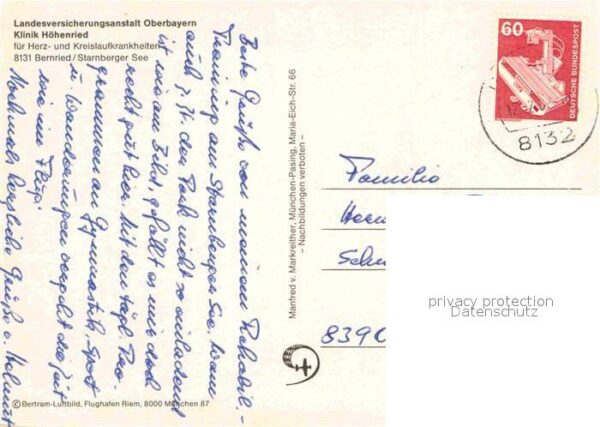 Landesversicherungsanstalt Oberbayern
Klinik Höhenried
für Herz- und Kreislaufkrankheiten
8131 Bernried / Starnberger See
Beste Grüße von meinem Rehabil.-
Training am Starnberger See. Wenn
auch z. Zt. der Park nicht so einladend
ist wie am Bild, gefällt es mir doch
recht gut hier. Mit dem tägl. Pro-
gramm an Gymnastik, Sport
u. Wanderungen vergeht die Zeit
wie im Flug.
Nochmals herzliche Grüße v. Helmut
© Bertram-Luftbild, Flughafen Riem, 8000 München 87
Manfred v. Markreither, München-Pasing, Maria-Eich-Str. 66
– Nachbildungen verboten –
60
DEUTSCHE BUNDESPOST
8132
Familie
8390
privacy protection
Datenschutz